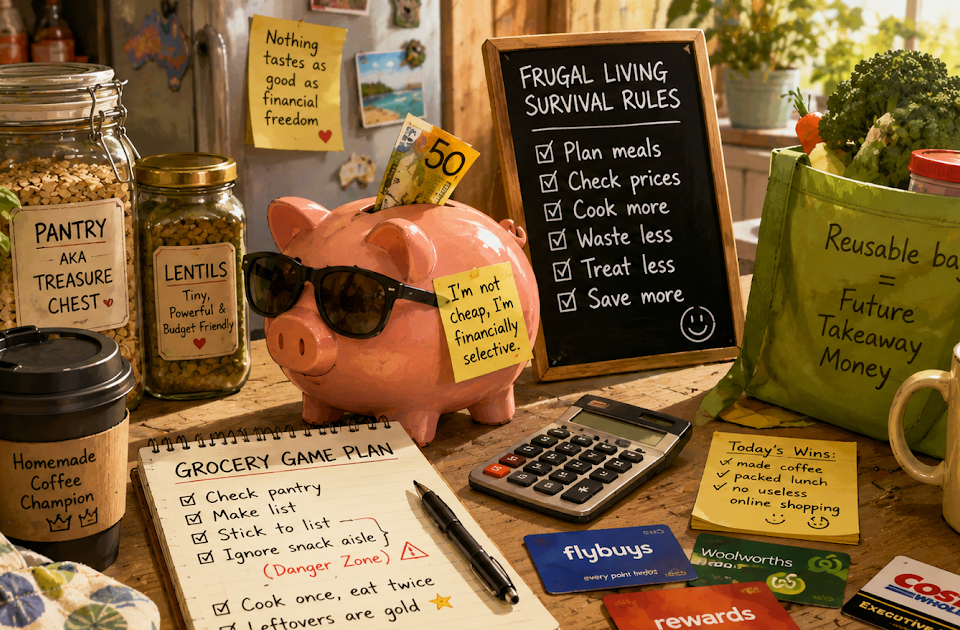 Nothing
tastes as
good as
financial
freedom
50
FRUGAL LIVING
SURVIVAL RULES
Plan meals
Check prices
Cook more
Waste less
Treat less
Save more
PANTRY
AKA
TREASURE
CHEST
LENTILS
Tiny,
Powerful &
Budget Friendly
I'm not
cheap, I'm
financially
selective.
Reusable ba
=
Future
Takeaway
Money
Homemade
Coffee
Champion
GROCERY GAME PLAN
Check pantry
Make list
Stick to list
Ignore snack aisle
(Danger Zone)
Cook once, eat twice
Leftovers are gold
Today's Wins:
made coffee
packed lunch
no useless
online shopping
flybuys
every point
Woolworths
rewards
COS
WHOL
EXECUTIVE